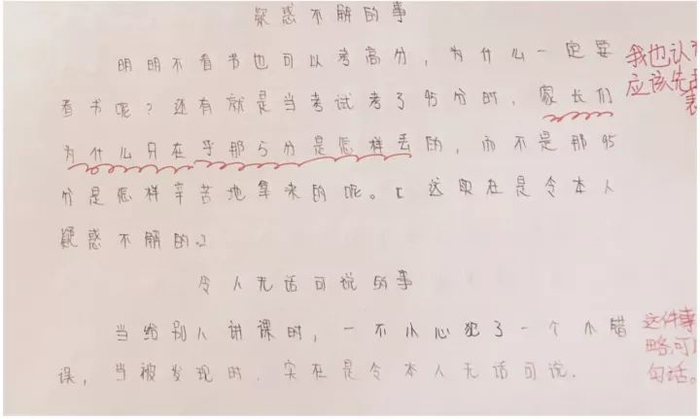 疑惑不解的事
明明不看书也可以考高分，为什么一定要
看书呢？还有就是当考试考了95分时，家长们
为什么只在乎那5分是怎样丢的，而不是那95
分是怎样辛苦地拿来的呢。[这实在是令本人
疑惑不解的。]
令人无话可说的事
当给别人讲课时，一不小心犯了一个小错
误，当被发现时，实在是令本人无话可说．
我也认
应该先
表
这件事
略，可
句话。